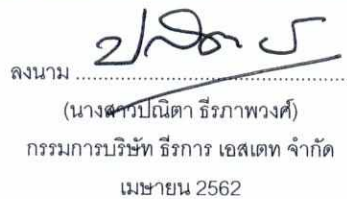 ลงนาม ....................................................
(นางสาวปณิตา ธีรภาพวงศ์)
กรรมการบริษัท ธีรการ เอสเตท จำกัด
เมษายน 2562